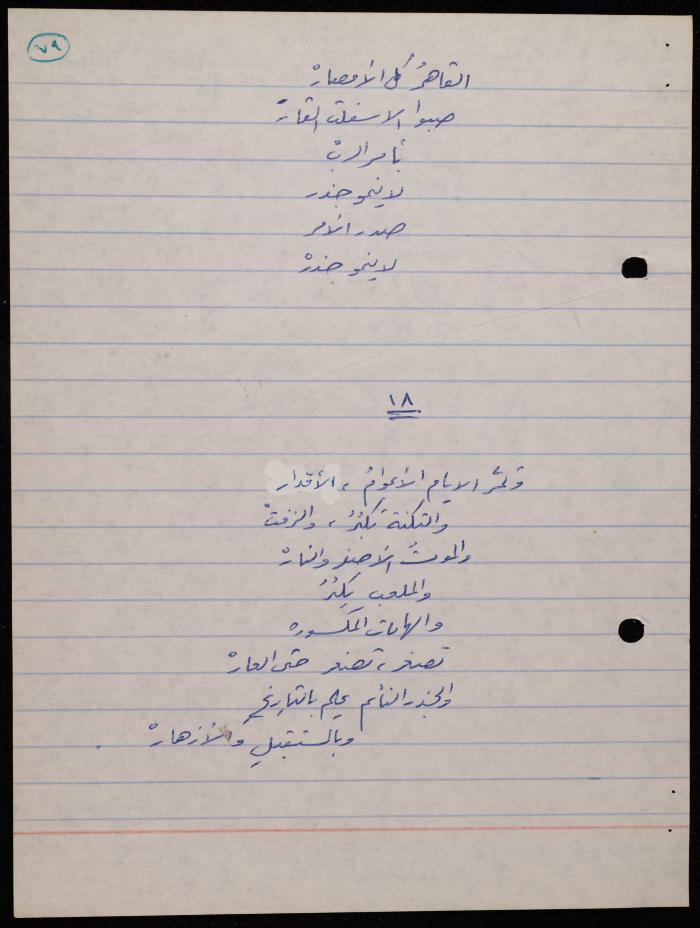 ٧٩
القاهرُ كل الأمصارْ
صبوا الاسفلت القارْ
بأمر الربْ
لا ينمو جذر
صدر الأمر
لا ينمو جذرْ
١٨
وتمرُّ الايام الأعوامُ ، الأقدار
والثكنةُ تكبُرُ ، والزفتْ
والموتُ الأصفر والنارْ
والملعب يكبُرُ
والهامات المكسوره
تصغر ، تصغر حتى العارْ
والجذر النائم يحلم بالتاريخِ
وبالمستقبلِ والأزهارْ .